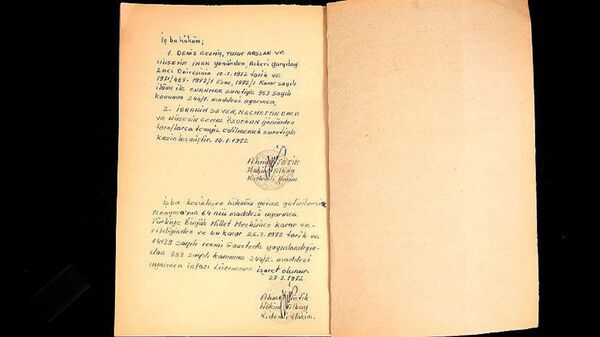 İş bu hüküm;
1. DENİZ GEZMİŞ, YUSUF ARSLAN ve
HÜSEYİN İNAN yönünden, Askeri Yargıtay
2nci Dairesinin 10-1-1972 tarih ve
1971/ 1972/1 Esas, 1972/1 Karar sayılı
ilâmı ile ONANMAK suretiyle 353 sayılı
kanunun 244/1. maddesi uyarınca,
2. İBRAHİM SEVEN, NECMETTİN BACA
ve HÜSEYİN CEMAL ÖZDOĞAN yönünden
taraflarca temyiz edilmemek suretiyle
kesinleşmiştir. 10.1.1972
Ahmet Tetik
Hâkim Albay
Kıdemli Hâkim
İşbu kesinleşen hükmün yerine getirilmesine
Anayasa'nın 64 ncü maddesi uyarınca
Türkiye Büyük Millet Meclisince karar ve-
rildiğinden ve bu karar 25.3.1972 tarih ve
14139 sayılı resmi Gazetede yayınlandığın-
dan 353 sayılı kanunun 244/2. maddesi
uyarınca infazı lüzumuna işaret olunur.
27.3.1972
Ahmet Tetik
Hâkim Albay
Kıdemli Hâkim.